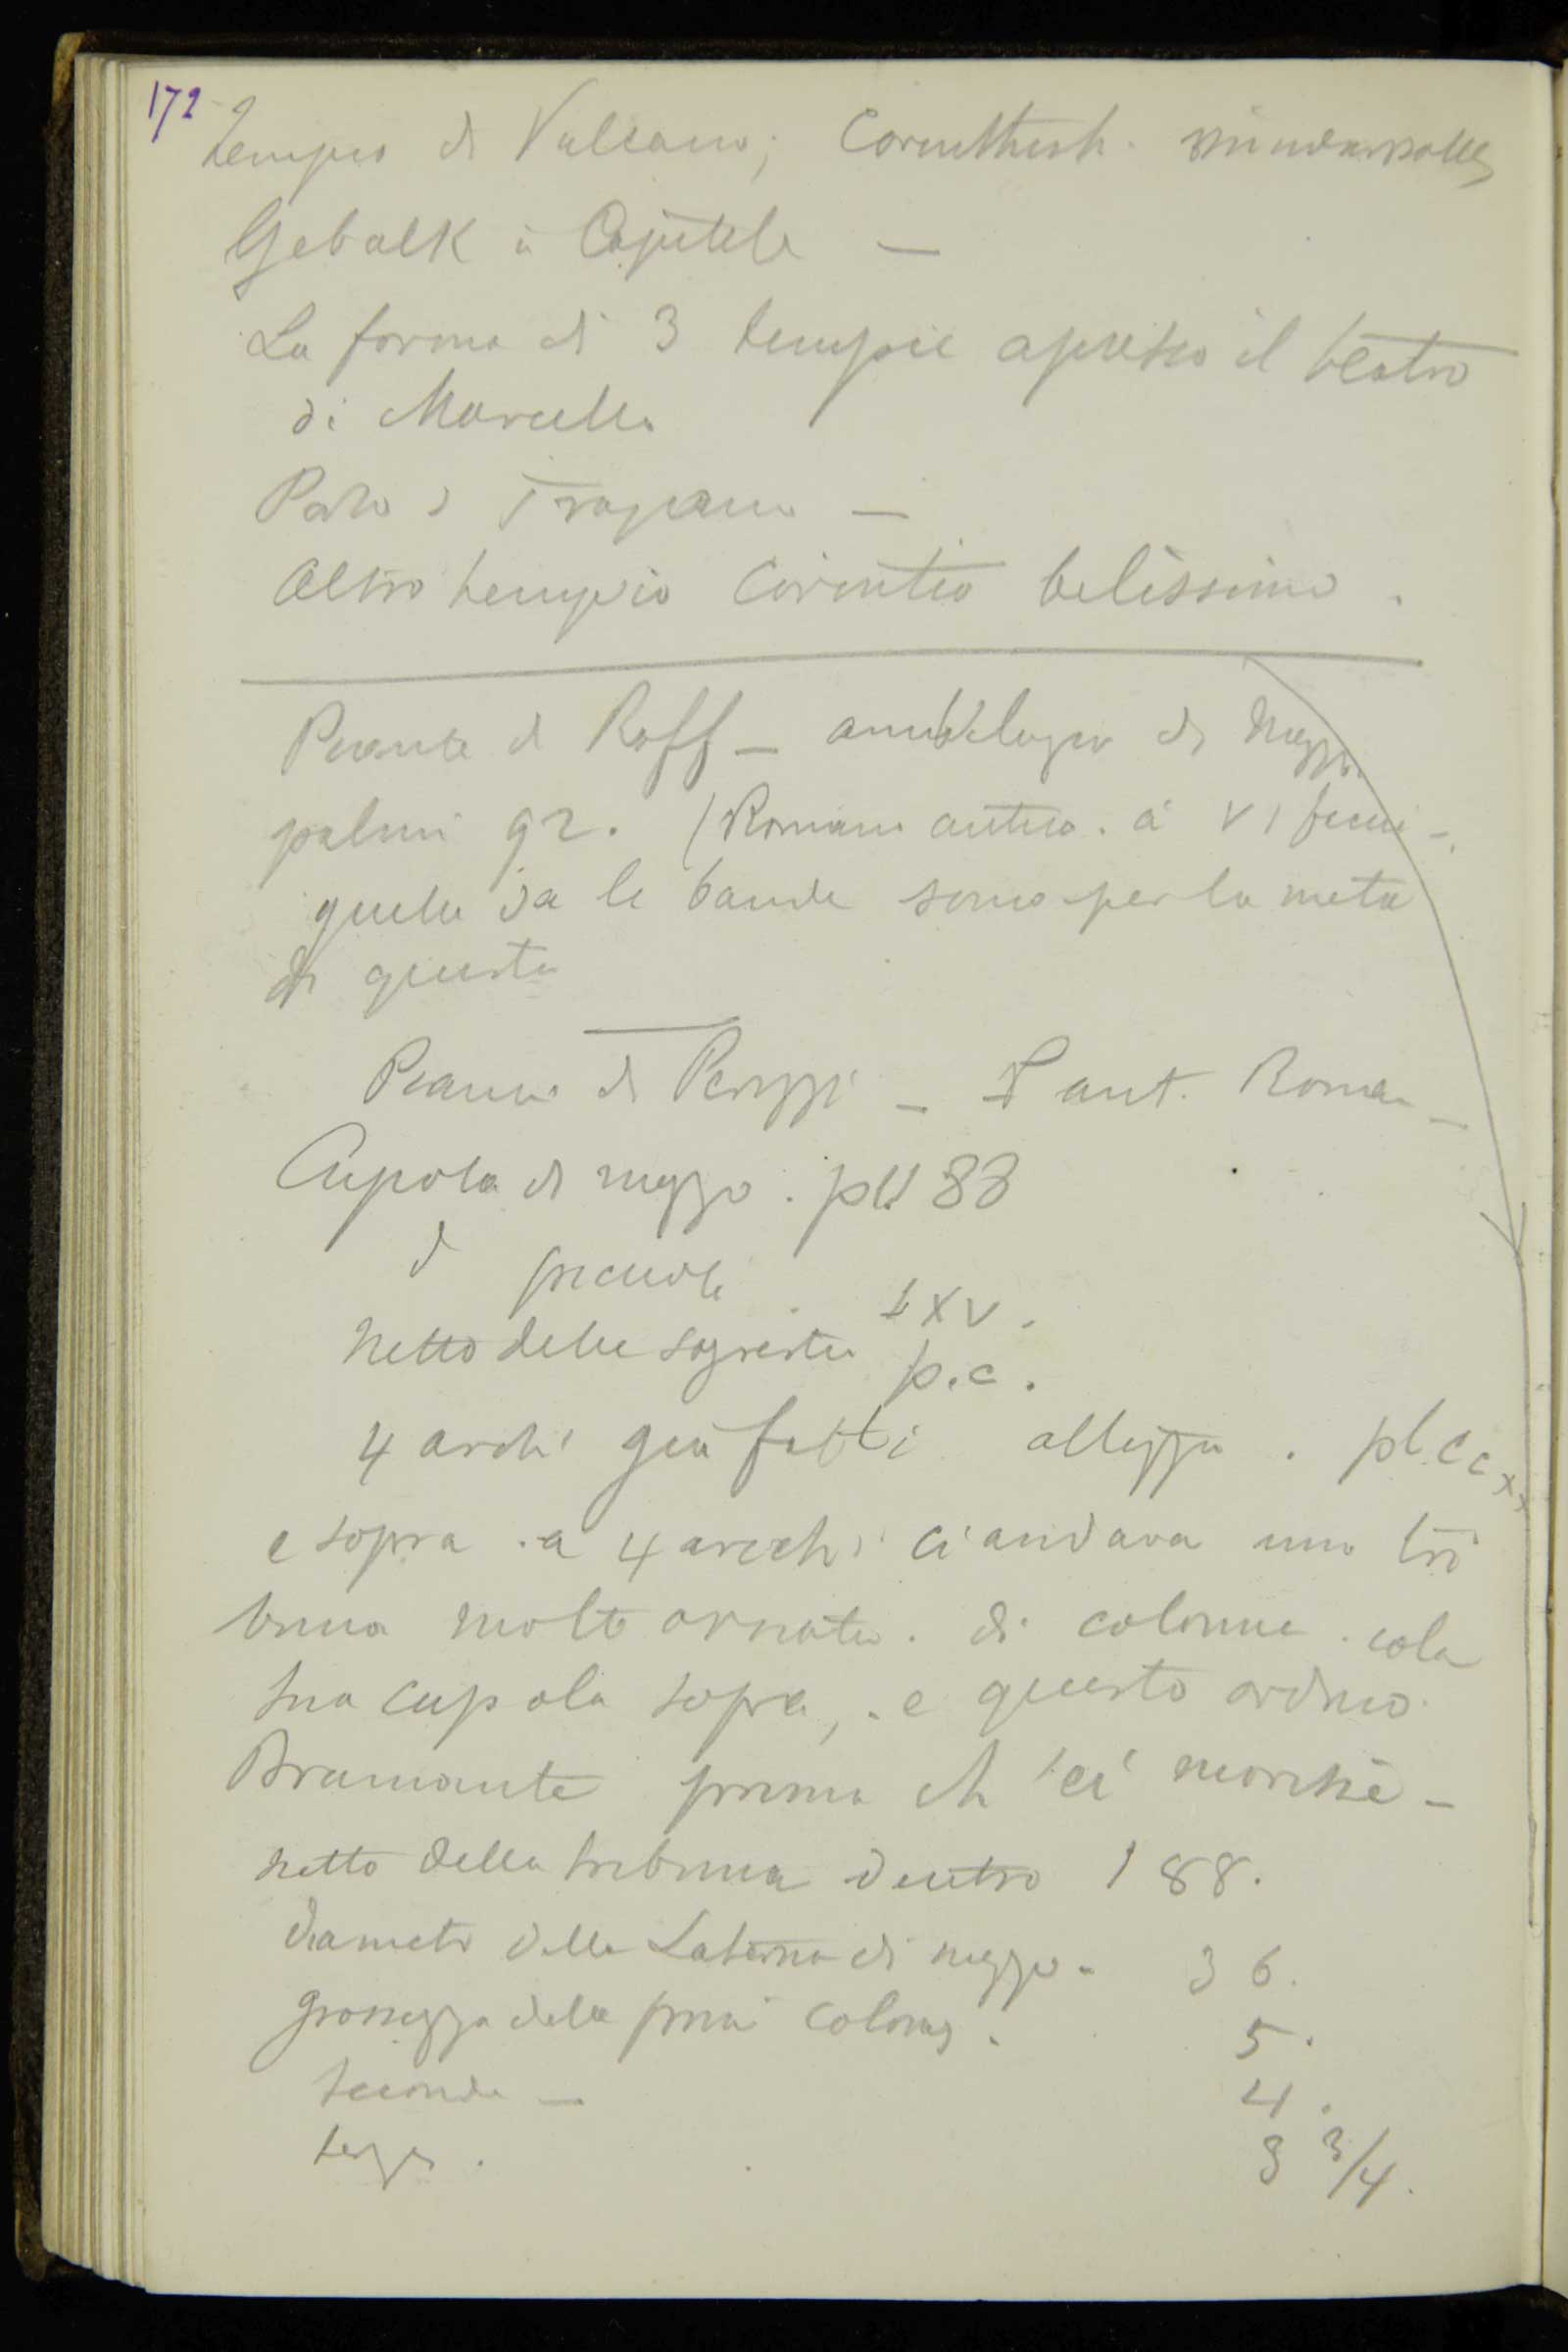 172
tempio di Vulcano; Corinthisch.
Gebälk u Capitelle —
La forma di 3 tempie apresso il teatro
di Marcello
Porto d Trajano —
Altro tempio Corintio belissimo.
Piante d Raff — di mezzo
palmi 92. (Romani antico. a VI
quelle da le bande sono per la meta
di questa
di Peruzzi — ant. Roma —
Cupola di mezzo. pl 88
d piccole LXV.
Netto delle sagrestie p.c.
4 archi già fatti altezza. pl CCXX
e sopra . a 4 archi ci andava una tri
buna molto ornata. di colonne . cola
sua cupola sopra, . e questo ordino
Bramante prima ch 'ei morisse —
netto della tribuna dentro 188.
Diametro della Laterna di mezzo. 36.
grossezza delle prime colonne. 5.
seconde — 4.
terze. 3 3/4.